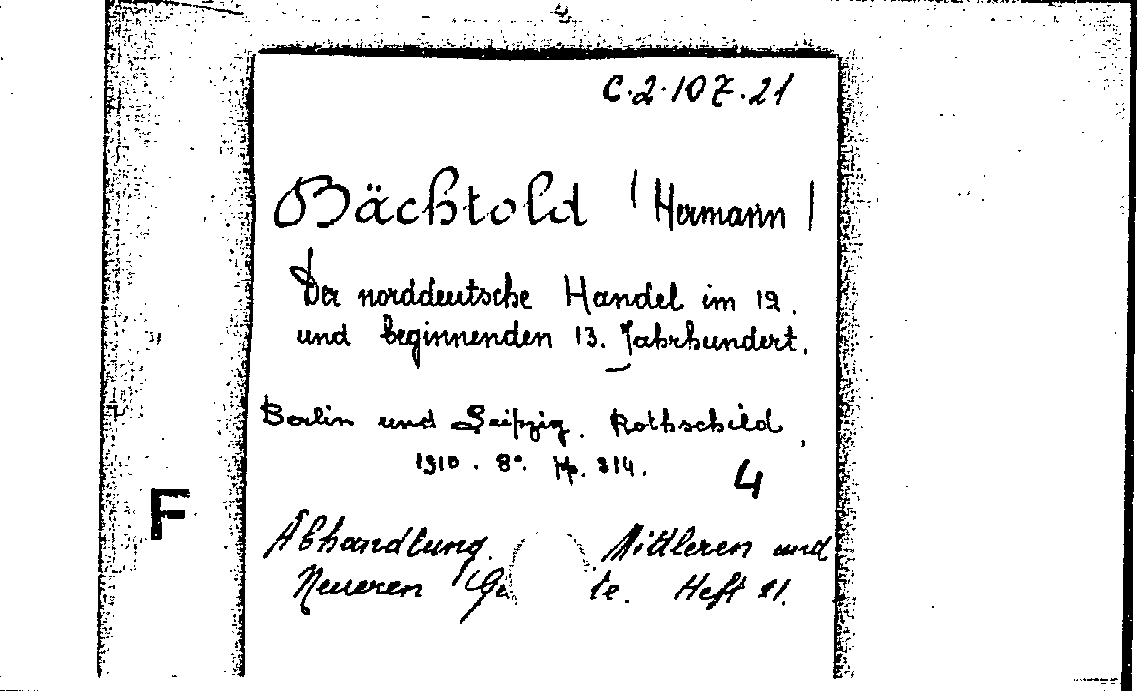 C.2.107.21
Bächtold (Hermann)
Der norddeutsche Handel im 12.
und beginnenden 13. Jahrhundert.
Berlin und Leipzig. Rothschild,
1910. 8°. pp. 314.
4
F
Abhandlung. Mittleren und
Neueren Ge te. Heft 21.